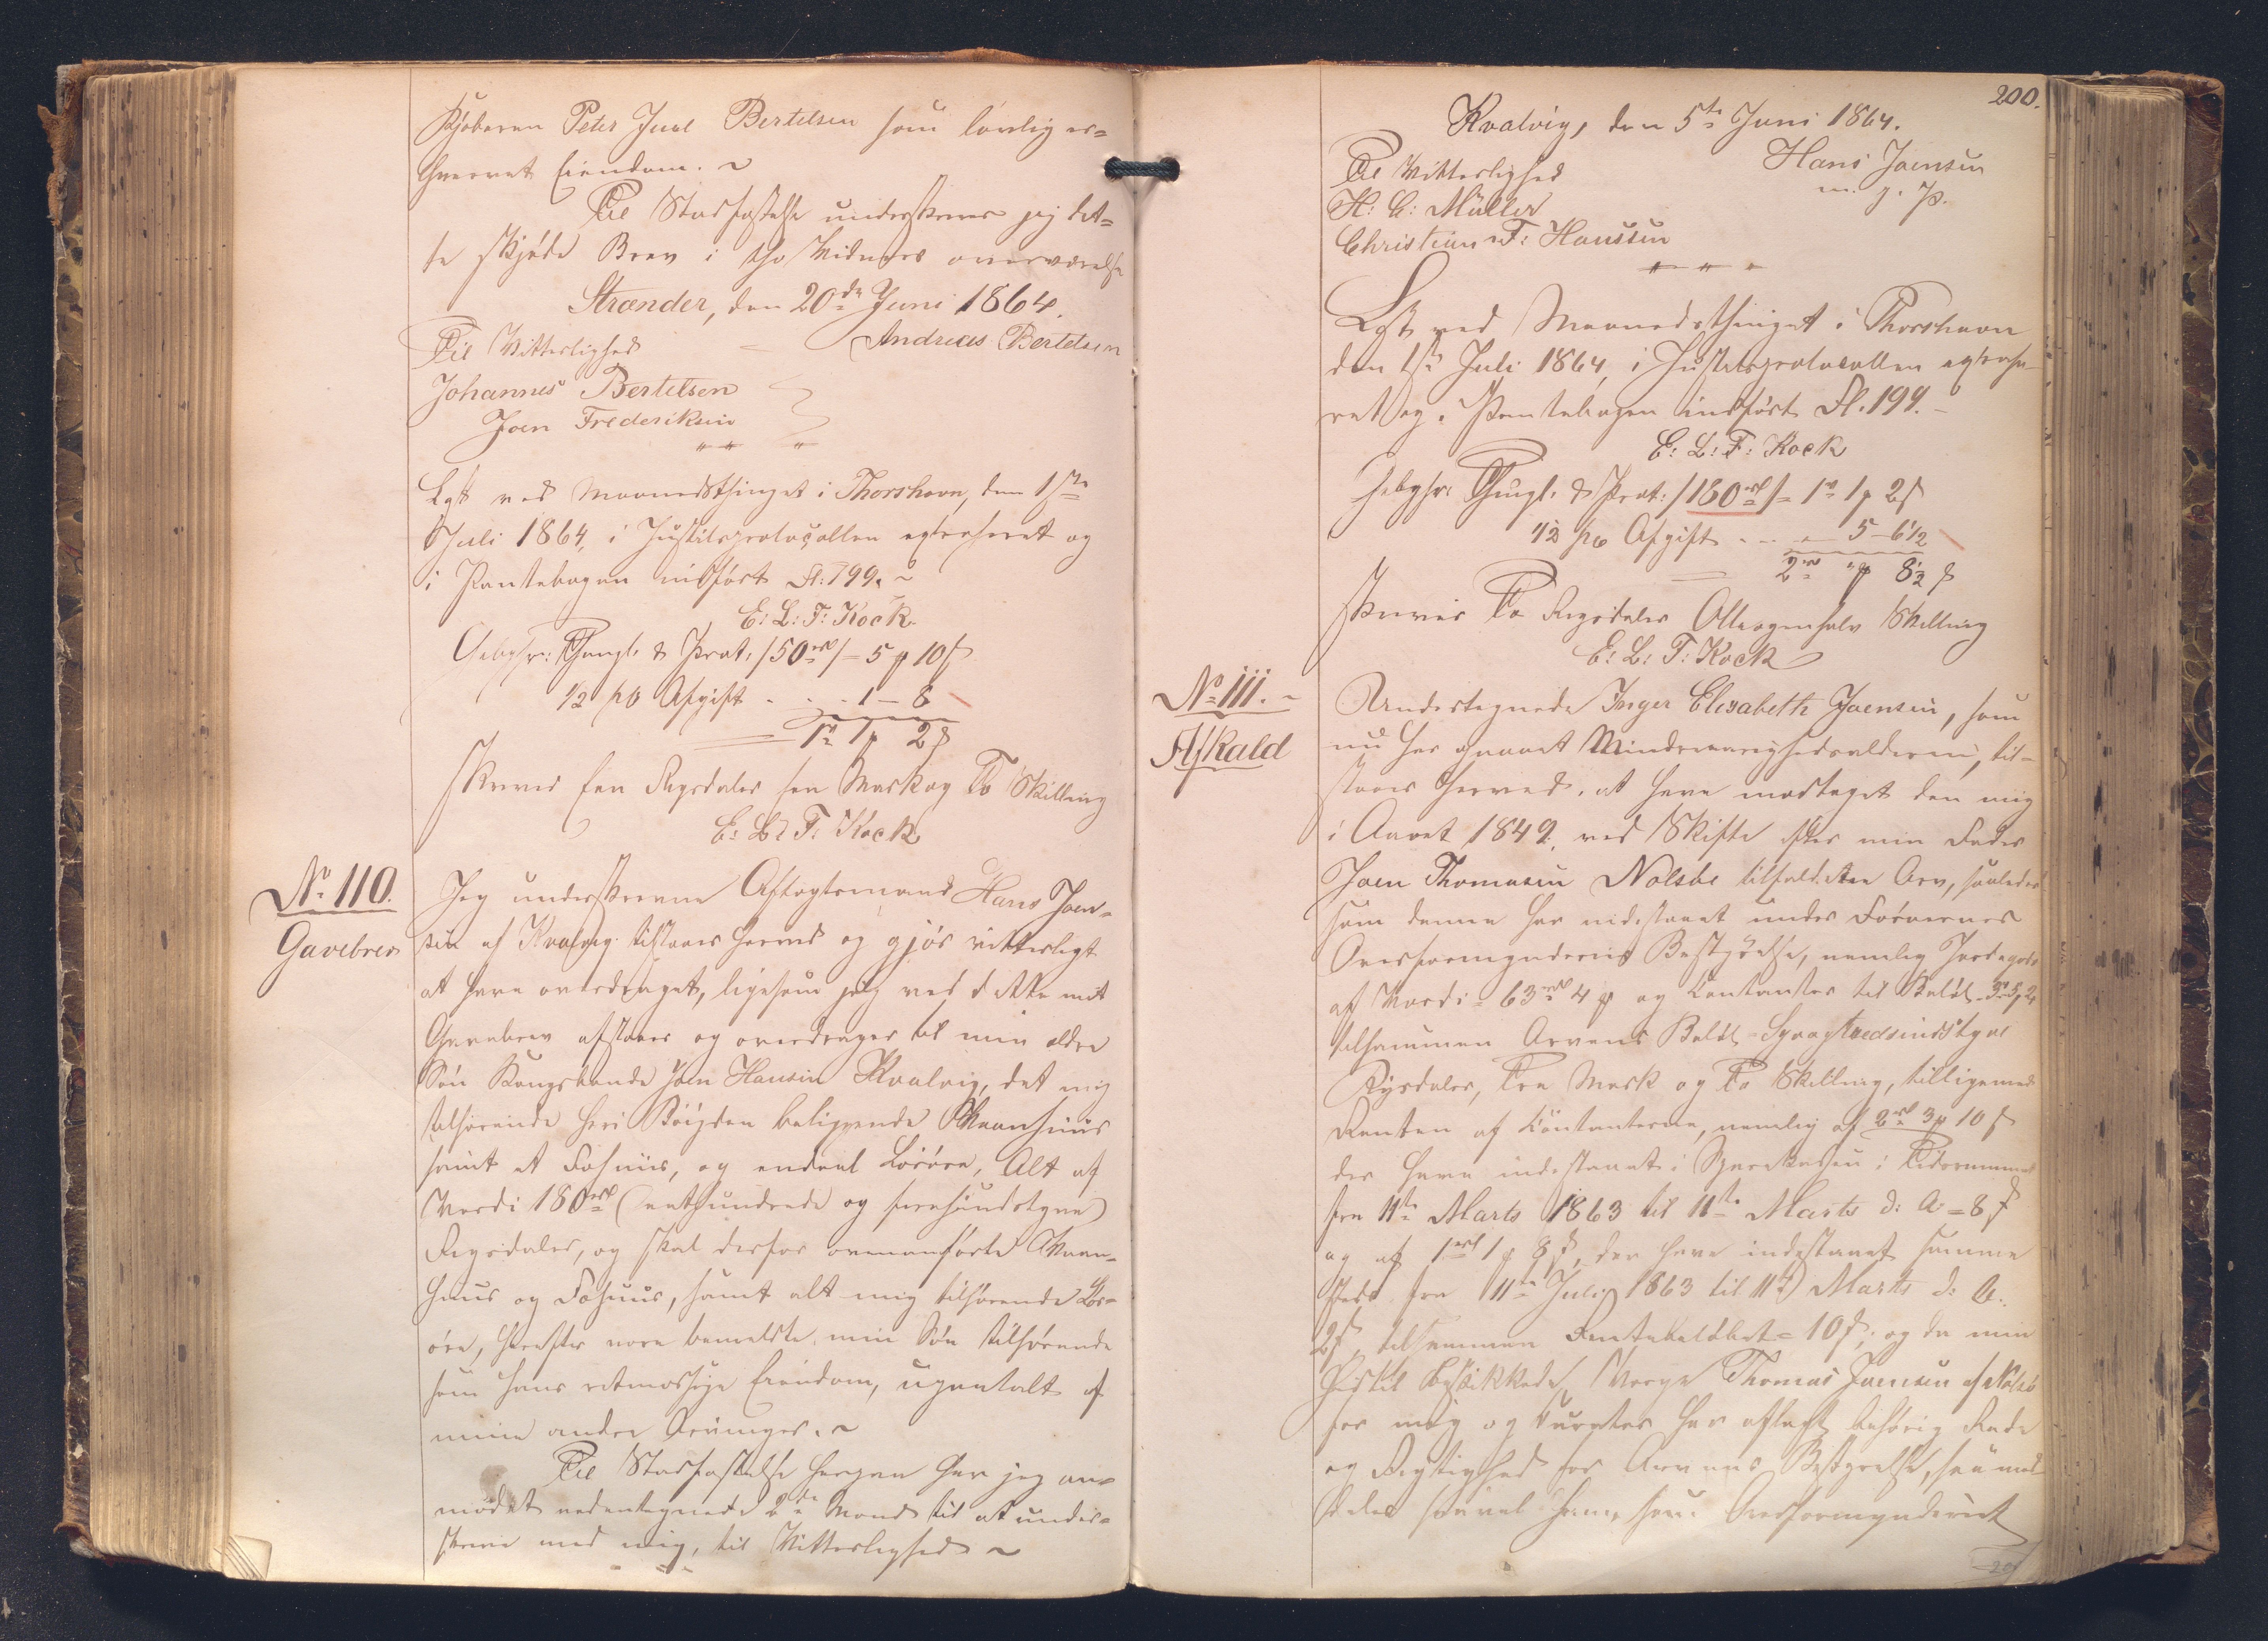 Kjøberen Peter Juul Bertelsen som lovlig er=
hvervet Eiendom. ~
Til Stadfæstelse underskrives jeg det=
te Skjøde Brev i tho Vidners overværelse
Strænder, den 20de Juni 1864.
Til Vitterlighed
Andreas Bertelsen
Johannes Bertelsen
Joen Frederiksen
Læst ved Maanedsthinget i Thorshavn, den 1ste
Juli 1864, i Justitsprotocollen extraheret og
i Pantebogen indført Fl: 199. ~
E: L: T: Kock
Gebyhr: Thingl. & Prot. /50 rd/ = 5 # 10 ß
1/2 pC Afgift . . . 1 – 8
= 1 rd 1 # 2 ß
Skriver Een Rigsdaler Een Mark og To Skilling
E: L: T: Kock
No 110.
Gavebrev
Jeg underskrevne Aftægtsmand Hans Joen=
sen af Kvalvig tilstaaer herved og gjør vitterligt
at have overdraget, ligesom jeg ved dette mit
Gavebrev afstaaer og overdrager til min ældre
Søn Kongsbonde Joen Hansen Kvalvig, det mig
tilhørende her i Bøigden beliggende Vaanhuus
samt et Fæhuus, og endeel Løsøre, Alt af
Værdi 180 rd (eethundrede og fiirsindstyve)
Rigsdaler, og skal derfor ovenanførte Vaan=
huus og Fæhuus, samt alt mig tilhørende Løs=
øre, herefter være bemeldte min Søn tilhørende
som hans retmæssige Eiendom, upaatalt af
mine andre Arvinger. ~
Til Stadfæstelse herpaa har jeg an=
modet nedentegnede 2de Mænd til at under=
skrive med mig, til Vitterlighed ~
200.
Kvalvig, den 5te Juni 1864.
Til Vitterlighed
Hans Joensen
m. f. P.
H: C: Müller
Christian F: Hansen
Læst ved Maanedsthinget i Thorshavn
den 1ste Juli 1864, i Justitsprotocollen extrahe=
ret og i Pantebogen indført Fl. 199. –
E: L: T: Kock
Gebyhr: Thingl. & Prot: /180 rd/ = 1 rd 1 # 2 ß
1/2 pC Afgift . . . 5 – 6 1/2
= 2 rd " # 8 1/2 ß
Skriver To Rigsdaler Otteogenhalv Skilling
E: L: T: Kock
No 111. ~
Afkald
Undertegnede Inger Elisabeth Joensen, som
nu har opnaaet Mindreaarighedsalderen, til=
staaer herved, at have modtaget den mig
i Aaret 1849, ved Skifte efter min Fader
Joen Thomasen Nolsøe tilfaldne Arv, saaledes
som denne har indestaaet under Færøernes
Overformynderies Bestyrelse, nemlig Jordegods
af Værdi = 63 rd 4 # og Contanter til Beløb 3 rd 5, 2
tilsammen Arvens Beløb = Syvogtredsindstyve
Rigsdaler, Tre Mark og To Skilling, tilligemed
Renten af Contanterne, nemlig af 2 rd 3 # 10 ß
der have indestaaet i Sparekassen i Tidsrummet
fra 11te Marts 1863 til 11te Marts d: A = 8 ß
og af 1 rd 1 # 8 ß, der have indestaaet samme
steds fra 11te Juli 1863 til 11te Marts d: A:
2 ß, tilsammen Rentebeløbet = 10 ß; og da min
hidtil beskikkede Værge Thomas Joensen af Nolsø
for mig og Curator har aflagt behørig Rede
og Rigtighed for Arvens Bestyrelse, saa med=
deles saavel ham, som Overformynderiet